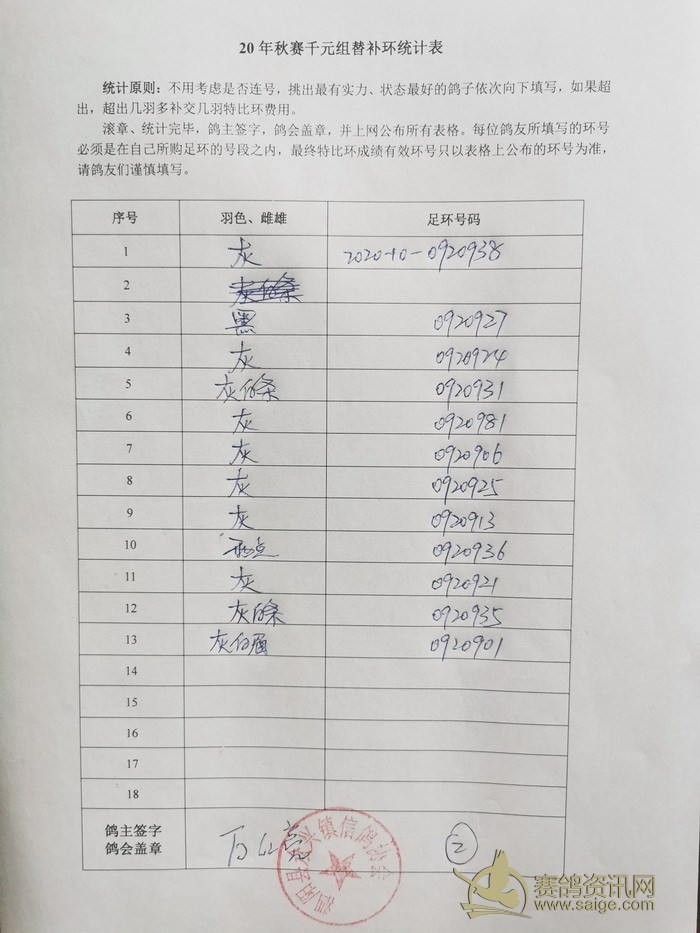 20年秋赛千元组替补环统计表
统计原则：不用考虑是否连号，挑出最有实力、状态最好的鸽子依次向下填写，如果超
出，超出几羽多补交几羽特比环费用。
滚章、统计完毕，鸽主签字，鸽会盖章，并上网公布所有表格。每位鸽友所填写的环号
必须是在自己所购足环的号段之内，最终特比环成绩有效环号只以表格上公布的环号为准，
请鸽友们谨慎填写。
序号 羽色、雌雄 足环号码
1 灰 2020-10-0920938
2
3 黑 0920927
4 灰 0920924
5 灰白条 0920931
6 灰 0920981
7 灰 0920906
8 灰 0920925
9 灰 0920913
10 0920936
11 灰 0920921
12 灰白条 0920935
13 灰白眉 0920901
14
15
16
17
18
鸽主签字
鸽会盖章
②
兴镇信鸽协会
赛鸽资讯网
www.saige.com